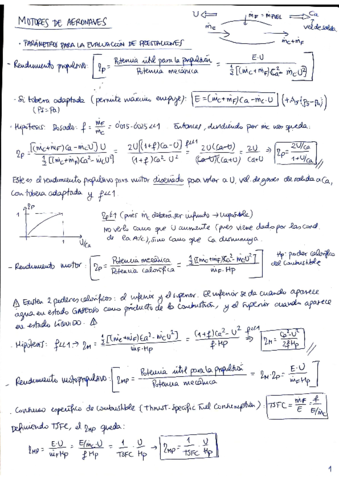 MOTORES DE AERONAVES
U ← ṁc → ṁc+ṁF
- PARÁMETROS PARA LA EVALUACIÓN DE PRESTACIONES
- Rendimiento propulsivo: ηp = Potencia útil para la propulsión / Potencia mecánica = E·U / ½[(ṁc+ṁF)Ca²-ṁcU²]
· Si tobera adaptada (permite máximo empuje): E = (ṁc+ṁF)Ca - ṁc·U
· Hipótesis: Dosado: f = ṁF/ṁc
Entonces, dividiendo por ṁc nos queda:
ηp = [(ṁc+ṁF)Ca - ṁcU]U / ½[(ṁc+ṁF)Ca²-ṁcU²] = 2U[(1+f)Ca-U] / (1+f)Ca²-U² = 2U(Ca-U) / (Ca-U)(Ca+U) = 2U / Ca+U ⇒ ηp = 2U/Ca / 1+U/Ca
Este es el rendimiento propulsivo para motor diseñado para volar a U, vel de gases de salida a Ca,
con tobera adaptada y f≪1
ηp
1
1 U/Ca
No vale como que U aumente (pues viene dado por las cond.
de la A/c), sino como que Ca disminuya.
- Rendimiento motor: ηM = Potencia mecánica / Potencia calorífica = ½[(ṁc+ṁF)Ca²-ṁcU²] / ṁF·Hp
Hp: poder calorífico del combustible
⚠ Existen 2 poderes caloríficos: el inferior y el superior. El inferior se da cuando aparece
agua en estado GASEOSO como producto de la combustión, y el superior cuando aparece
en estado LÍQUIDO. ⚠
· Hipótesis: f≪1 → ηM = ½[(ṁc+ṁF)Ca²-ṁcU²] / ṁF·Hp = (1+f)Ca²-U² / f Hp ⇒ ηM = Ca²-U² / 2fHp
- Rendimiento motopropulsivo: ηmp = Potencia útil para la propulsión / Potencia mecánica = ηM·ηp = E·U / ṁF Hp
· Consumo específico de combustible (Thrust-Specific Fuel Consumption): TSFC = ṁF / E = f / E/ṁc
Definiendo TSFC, el ηmp queda:
ηmp = E·U / ṁF Hp = E/ṁc·U / f Hp = 1/TSFC · U/Hp ⇒ ηmp = 1/TSFC · U/Hp
1